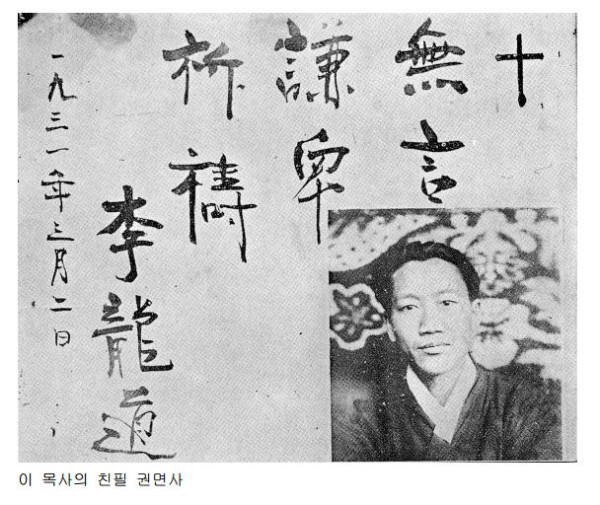 十
無言
謙卑
祈禱
李龍道
一九三一年三月二日
이 목사의 친필 권면사